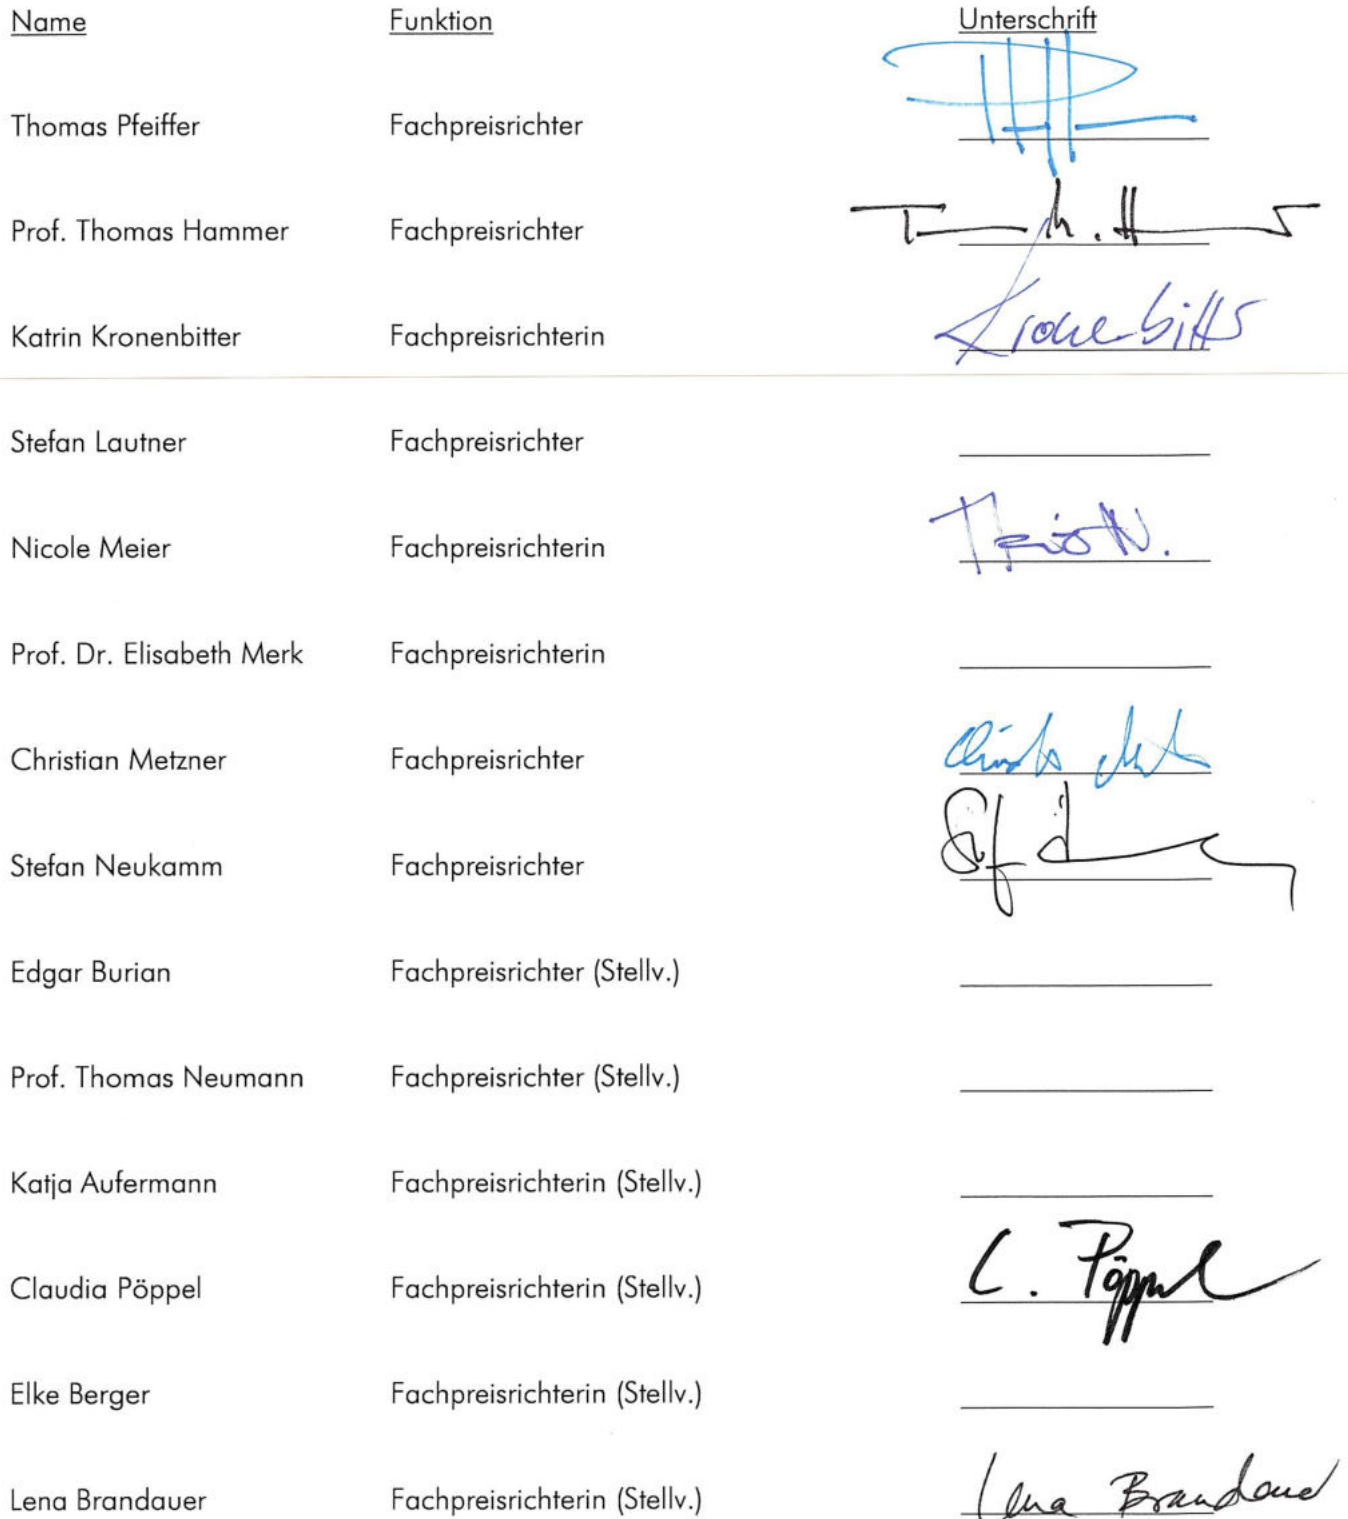 Name Funktion Unterschrift
Thomas Pfeiffer Fachpreisrichter
Prof. Thomas Hammer Fachpreisrichter
Katrin Kronenbitter Fachpreisrichterin
Stefan Lautner Fachpreisrichter
Nicole Meier Fachpreisrichterin
Prof. Dr. Elisabeth Merk Fachpreisrichterin
Christian Metzner Fachpreisrichter
Stefan Neukamm Fachpreisrichter
Edgar Burian Fachpreisrichter (Stellv.)
Prof. Thomas Neumann Fachpreisrichter (Stellv.)
Katja Aufermann Fachpreisrichterin (Stellv.)
Claudia Pöppel Fachpreisrichterin (Stellv.) C. Pöppel
Elke Berger Fachpreisrichterin (Stellv.)
Lena Brandauer Fachpreisrichterin (Stellv.) Lena Brandauer